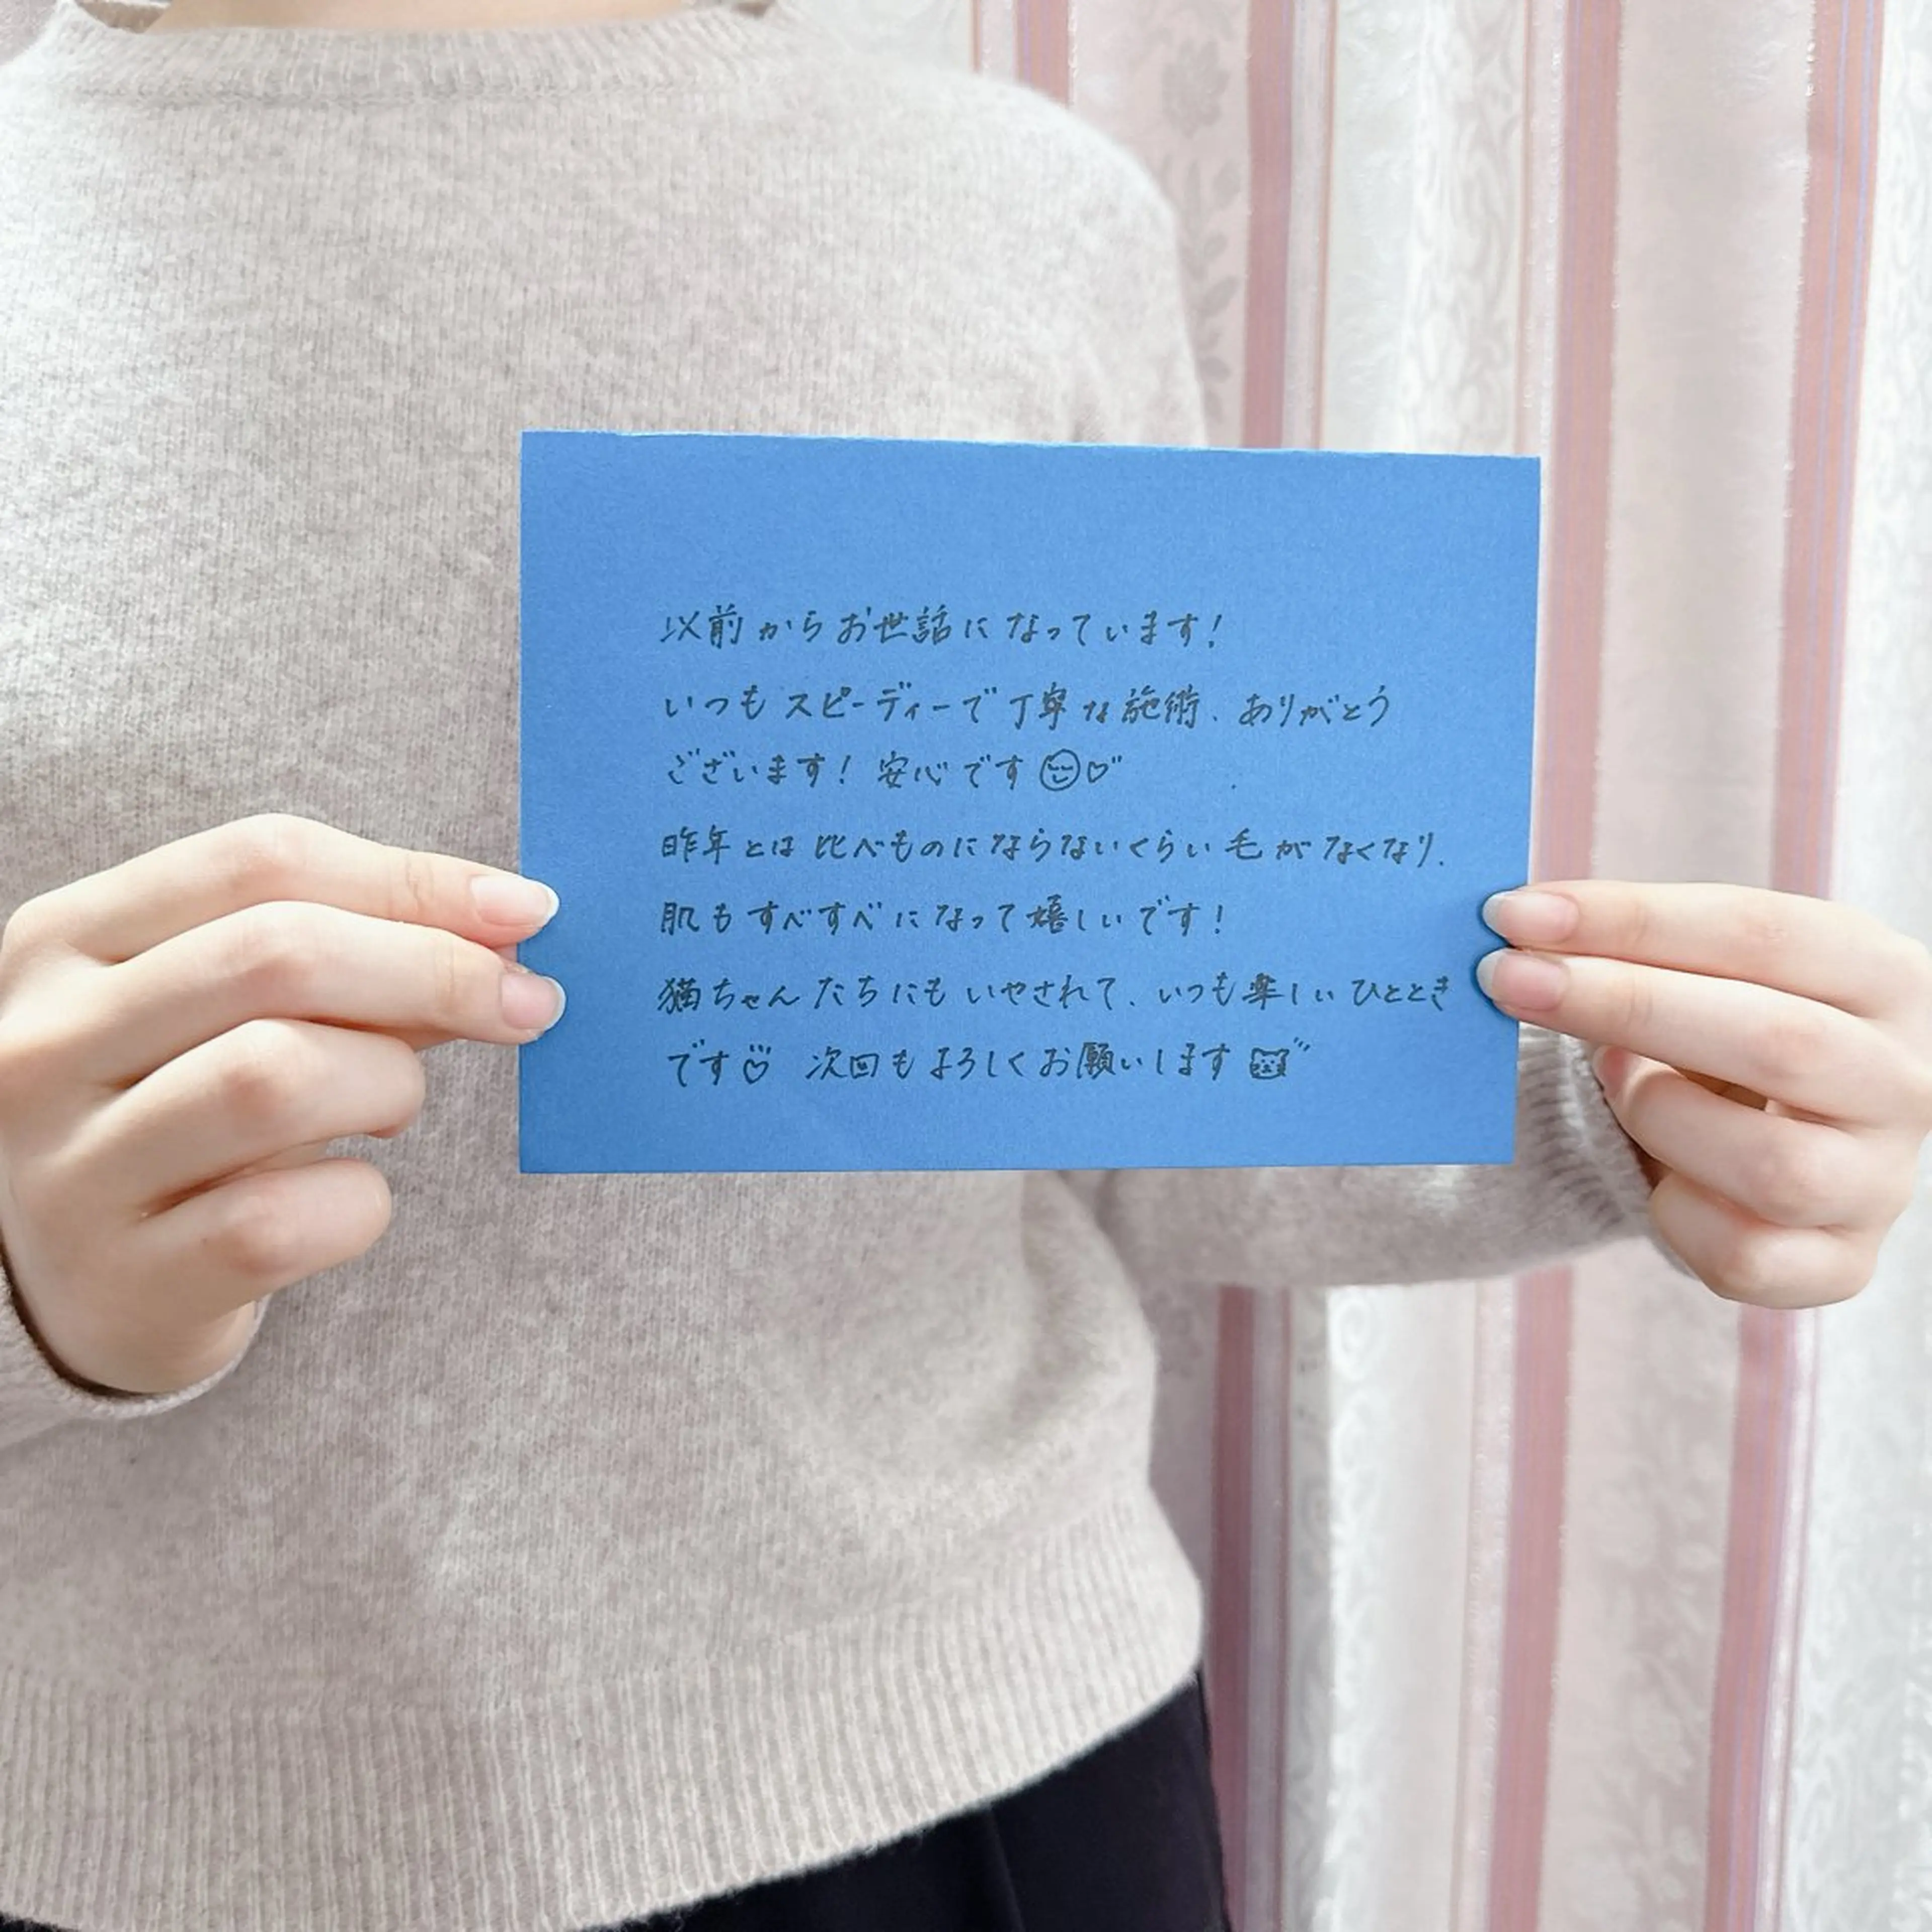 以前からお世話になっています!
いつもスピーディーで丁寧な施術、ありがとう
ございます! 安心です
昨年とは比べものにならないくらい毛がなくなり、
肌もすべすべになって嬉しいです!
猫ちゃんたちにもいやされて、いつも楽しいひととき
です♡ 次回もよろしくお願いします